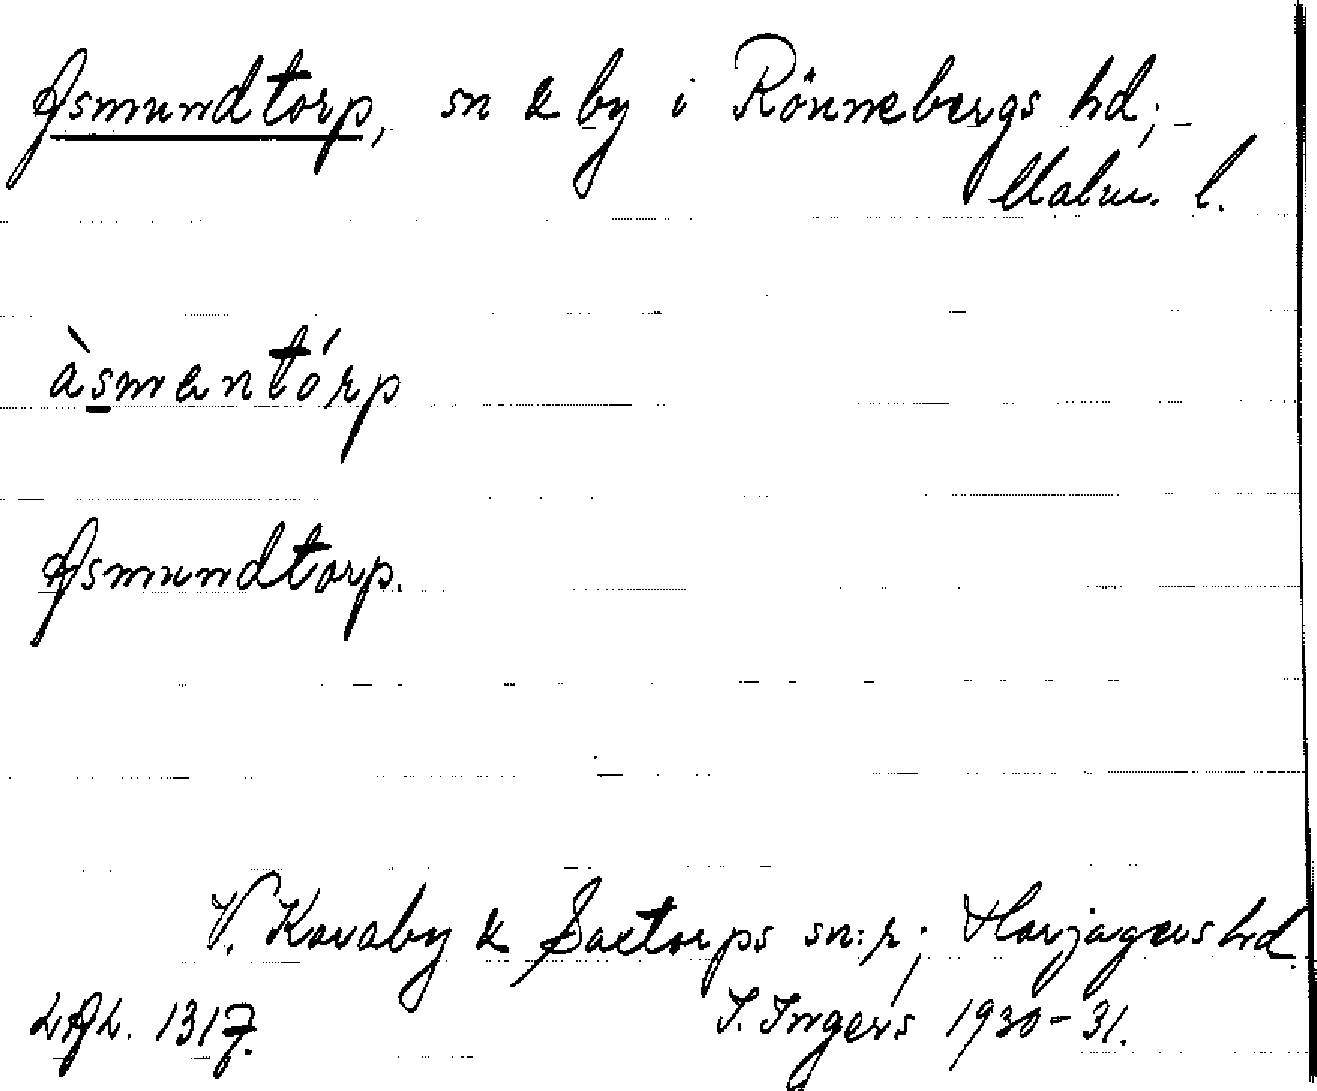 Asmundtorp, sn & by i Rönnebergs hd;
Malm. l.
àsmantórp
Asmundtorp.
V. Karaby & Saxtorps sn:r; Harjagers hd.
LAL. 1317.
I. Ingers 1930-31.